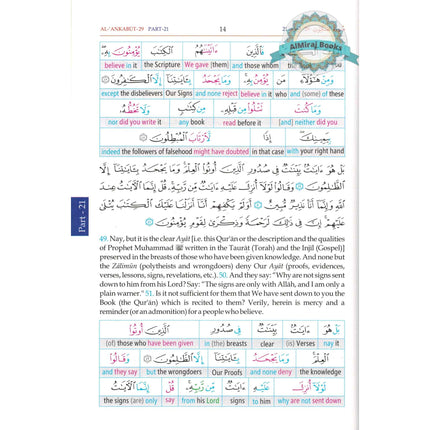 AL-'ANKABUT-29 PART-21 14
AlMiraj Books
فَٱلَّذِينَ ءَاتَيْنَٰهُمُ ٱلْكِتَٰبَ يُؤْمِنُونَ بِهِۦ
believe in it the Scripture We gave [them] and those whom
وَمِنْ هَٰٓؤُلَآءِ مَن يُؤْمِنُ بِهِۦ وَمَا يَجْحَدُ بِـَٔايَٰتِنَآ إِلَّا ٱلْكَٰفِرُونَ
except the disbelievers Our Signs and none reject believe in it who and (some) of these
وَمَا كُنتَ تَتْلُوا۟ مِن قَبْلِهِۦ مِن كِتَٰبٍ وَلَا تَخُطُّهُۥ
nor did you write it any book before it read [and] neither did you
بِيَمِينِكَ إِذًا لَّٱرْتَابَ ٱلْمُبْطِلُونَ
indeed the followers of falsehood might have doubted in that case with your right hand
بَلْ هُوَ ءَايَٰتٌۢ بَيِّنَٰتٌ فِى صُدُورِ ٱلَّذِينَ أُوتُوا۟ ٱلْعِلْمَ وَمَا يَجْحَدُ بِـَٔايَٰتِنَآ إِلَّا
ٱلظَّٰلِمُونَ وَقَالُوا۟ لَوْلَآ أُنزِلَ عَلَيْهِ ءَايَٰتٌ مِّن رَّبِّهِۦ قُلْ إِنَّمَا ٱلْءَايَٰتُ عِندَ
ٱللَّهِ وَإِنَّمَآ أَنَا۠ نَذِيرٌ مُّبِينٌ أَوَلَمْ يَكْفِهِمْ أَنَّآ أَنزَلْنَا عَلَيْكَ ٱلْكِتَٰبَ يُتْلَىٰ
عَلَيْهِمْ إِنَّ فِى ذَٰلِكَ لَرَحْمَةً وَذِكْرَىٰ لِقَوْمٍ يُؤْمِنُونَ
Part - 21
49. Nay, but it is the clear Ayât [i.e. this Qur'ân or the description and the qualities
of Prophet Muhammad ﷺ written in the Taurât (Torah) and the Injîl (Gospel)]
preserved in the breasts of those who have been given knowledge. And none but
the Zâlimûn (polytheists and wrongdoers) deny Our Ayât (proofs, evidences,
verses, lessons, signs, revelations, etc.). 50. And they say: "Why are not signs sent
down to him from his Lord? Say: "The signs are only with Allah, and I am only a
plain warner." 51. Is it not sufficient for them that We have sent down to you the
Book (the Qur'ân) which is recited to them? Verily, herein is mercy and a
reminder (or an admonition) for a people who believe.
بَلْ هُوَ ءَايَٰتٌۢ بَيِّنَٰتٌ فِى صُدُورِ ٱلَّذِينَ أُوتُوا۟
(of) those who have been given the breasts in clear (is) Verses nay it
ٱلْعِلْمَ وَمَا يَجْحَدُ بِـَٔايَٰتِنَآ إِلَّا ٱلظَّٰلِمُونَ وَقَالُوا۟
and they say but the wrongdoers Our Proofs and none deny the knowledge
لَوْلَآ أُنزِلَ عَلَيْهِ ءَايَٰتٌ مِّن رَّبِّهِۦ قُلْ إِنَّمَا ٱلْءَايَٰتُ
the signs (are) only say from his Lord signs to him why are not sent down